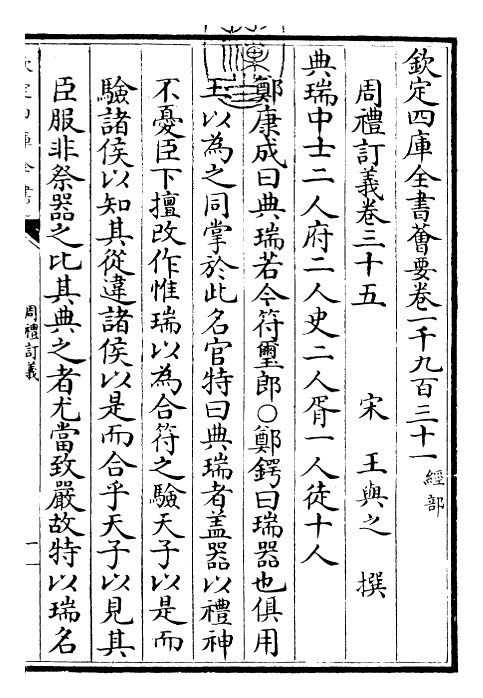 欽定四庫全書薈要卷一千九百三十一經部
周禮訂義卷三十五 宋 王與之 撰
典瑞中士二人府二人史二人胥一人徒十人
鄭康成曰典瑞若今符璽郎○鄭鍔曰瑞器也俱用
玉以為之同掌於此名官特曰典瑞者盖器以禮神
不憂臣下擅改作惟瑞以為合符之驗天子以是而
驗諸侯以知其從違諸侯以是而合乎天子以見其
臣服非祭器之比其典之者尤當致嚴故特以瑞名
欽定四庫全書
周禮訂義
一